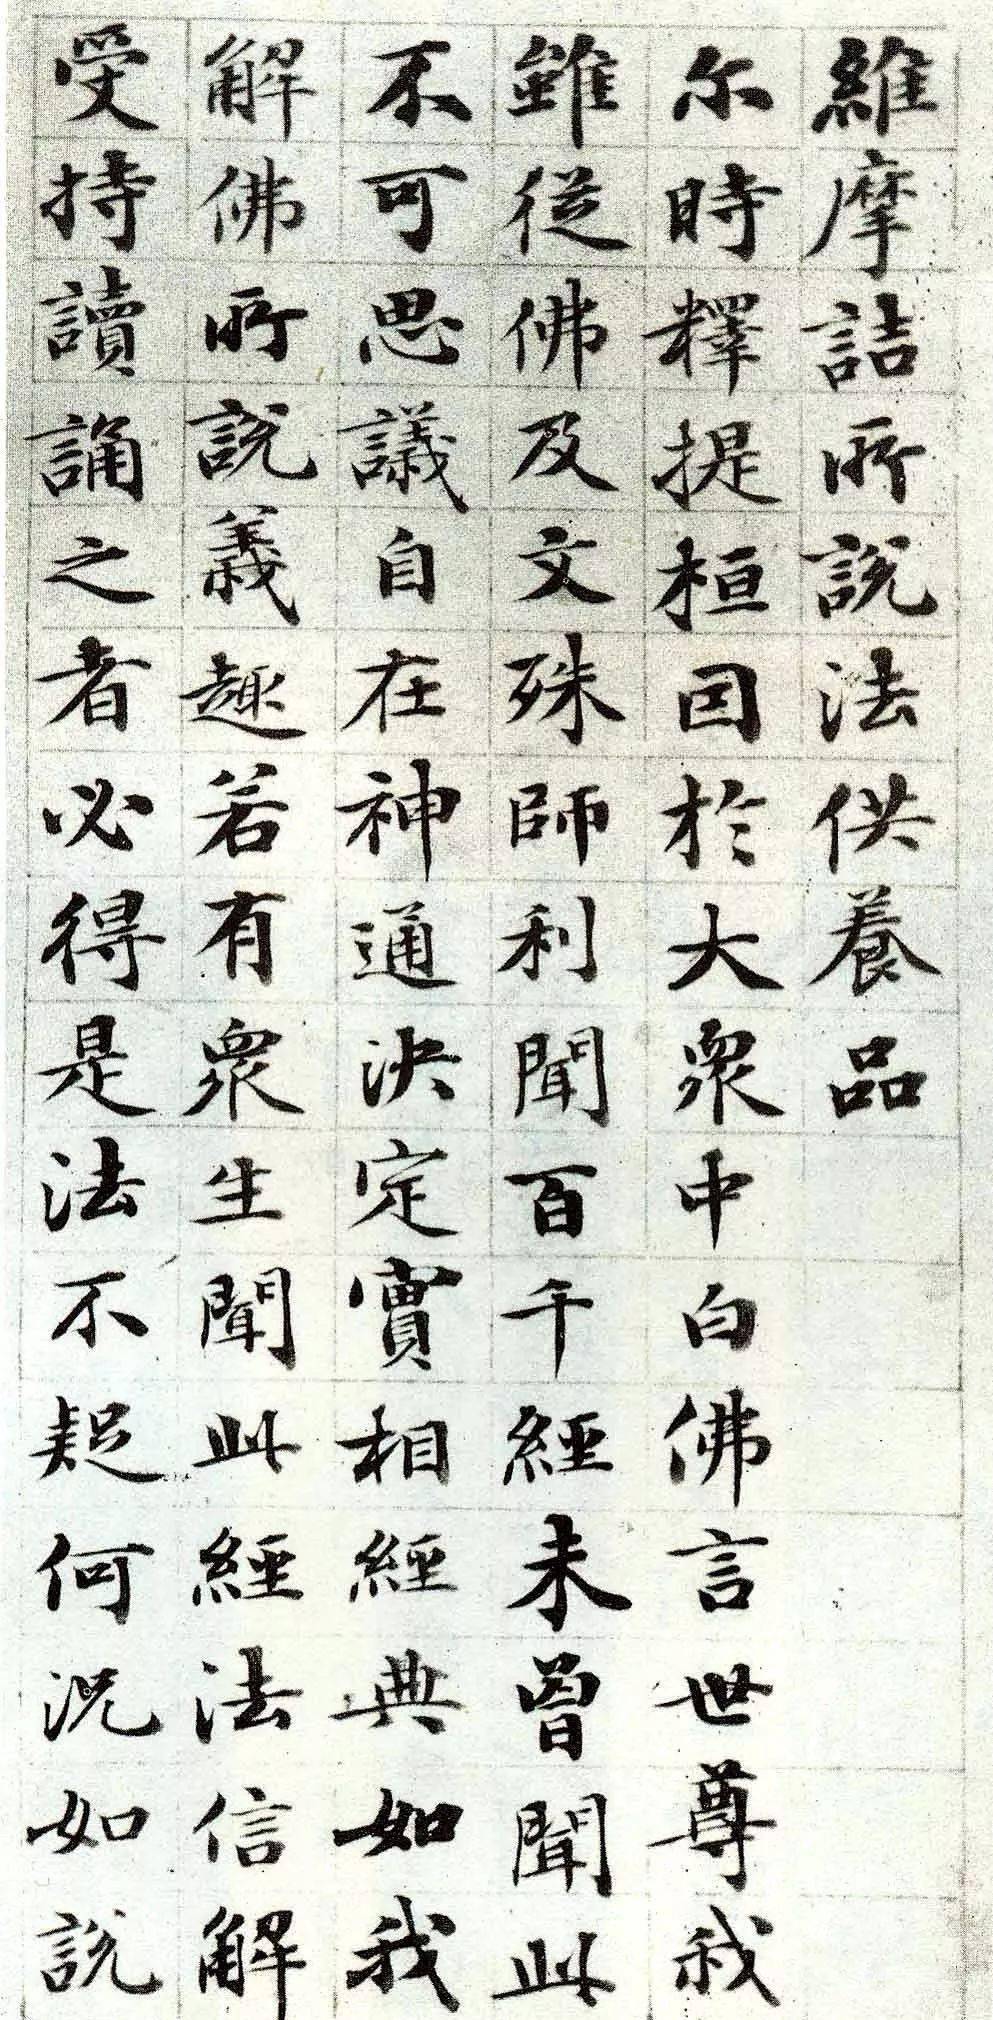 維摩詰所說法供養品
尔時釋提桓因於大衆中白佛言世尊我
雖從佛及文殊師利聞百千經未曾聞此
不可思議自在神通决定實相經典如我
解佛所說義趣若有衆生聞此經法信解
受持讀誦之者必得是法不疑何況如說